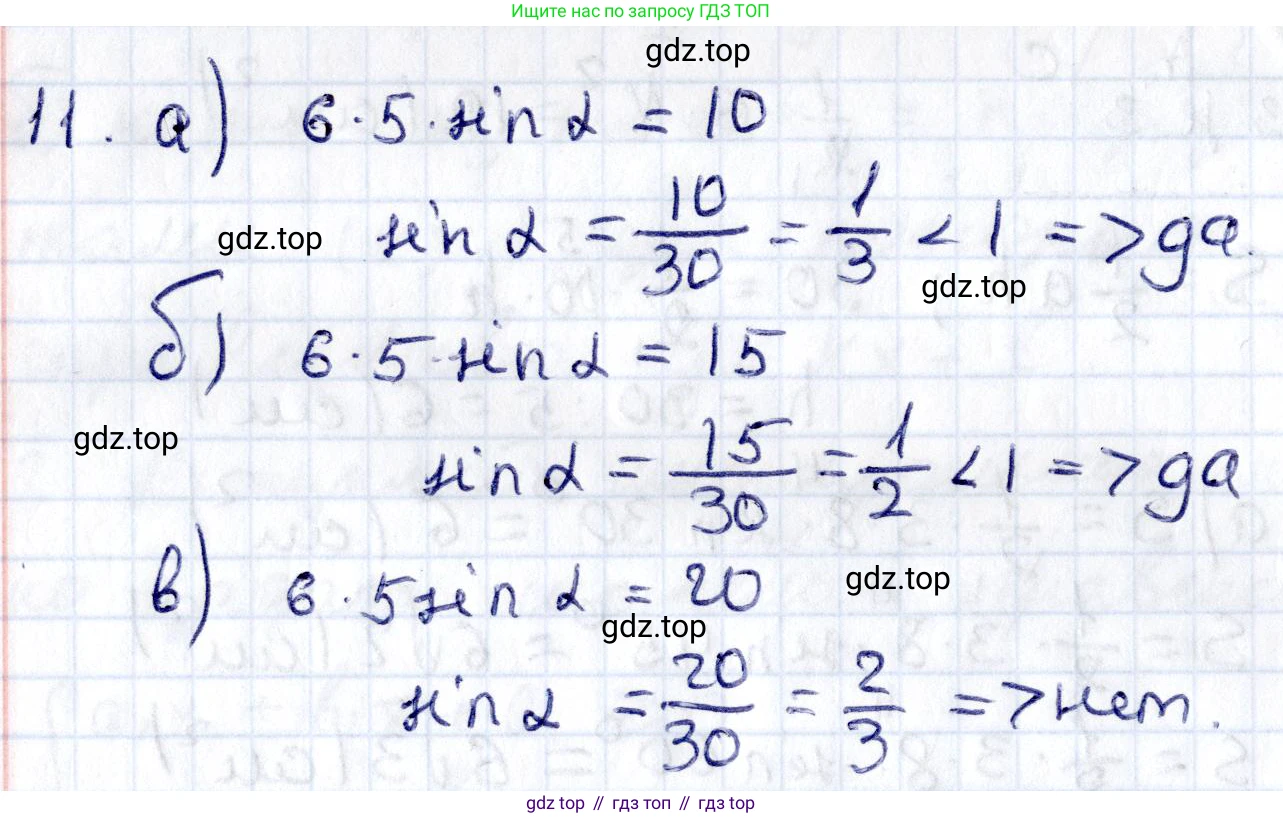 Ищите нас по запросу ГДЗ ТОП
gdz.top
11. а) 6·5·sin α = 10
sin α = 10/30 = 1/3 < 1 => да.
gdz.top
gdz.top
б) 6·5·sin α = 15
gdz.top
sin α = 15/30 = 1/2 < 1 => да
в) 6·5 sin α = 20
gdz.top
gdz.top
sin α = 20/30 = 2/3 => нет.
gdz top // гдз топ // гдз top